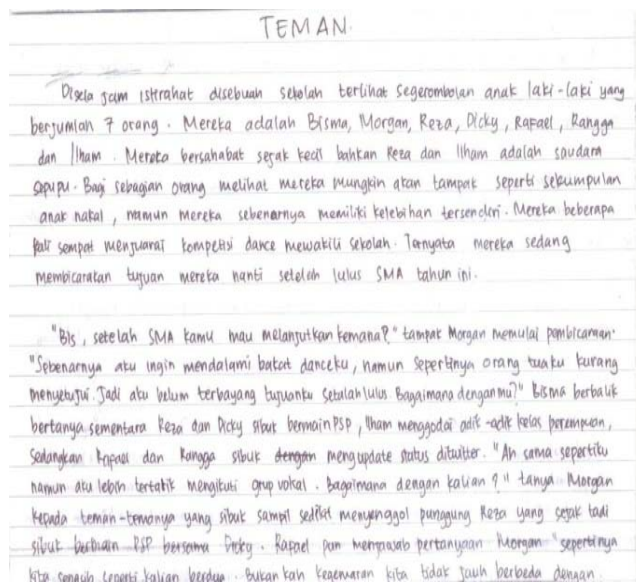 TEMAN.
Disela jam istirahat disebuah sekolah terlihat segerombolan anak laki-laki yang
berjumlah 7 orang. Mereka adalah Bisma, Morgan, Reza, Dicky, Rafael, Rangga
dan Ilham. Mereka bersahabat sejak kecil bahkan Reza dan Ilham adalah saudara
sepupu. Bagi sebagian orang melihat mereka mungkin akan tampak seperti sekumpulan
anak nakal, namun mereka sebenarnya memiliki kelebihan tersendiri. Mereka beberapa
kali sempat menjuarai kompetisi dance mewakili sekolah. Ternyata mereka sedang
membicarakan tujuan mereka nanti setelah lulus SMA tahun ini.
"Bis, setelah SMA kamu mau melanjutkan kemana?" tampak Morgan memulai pembicaraan.
"Sebenarnya aku ingin mendalami bakat danceku, namun sepertinya orang tuaku kurang
menyetujui. Jadi aku belum terbayang tujuanku setelah lulus. Bagaimana denganmu?" Bisma berbalik
bertanya sementara Reza dan Dicky sibuk bermain PSP, Ilham menggodai adik-adik kelas perempuan,
sedangkan Rafael dan Rangga sibuk dengan mengupdate status ditwitter. "Ah sama sepertiku
namun aku lebih tertarik mengikuti grup vokal. Bagaimana dengan kalian?" tanya Morgan
kepada teman-temannya yang sibuk sampil sedikit menyenggol punggung Reza yang sejak tadi
sibuk bermain PSP bersama Dicky. Rafael pun menjawab pertanyaan Morgan "sepertinya
kita sejauh seperti kalian berdua. Bukan kah kegemaran kita tidak jauh berbeda dengan.